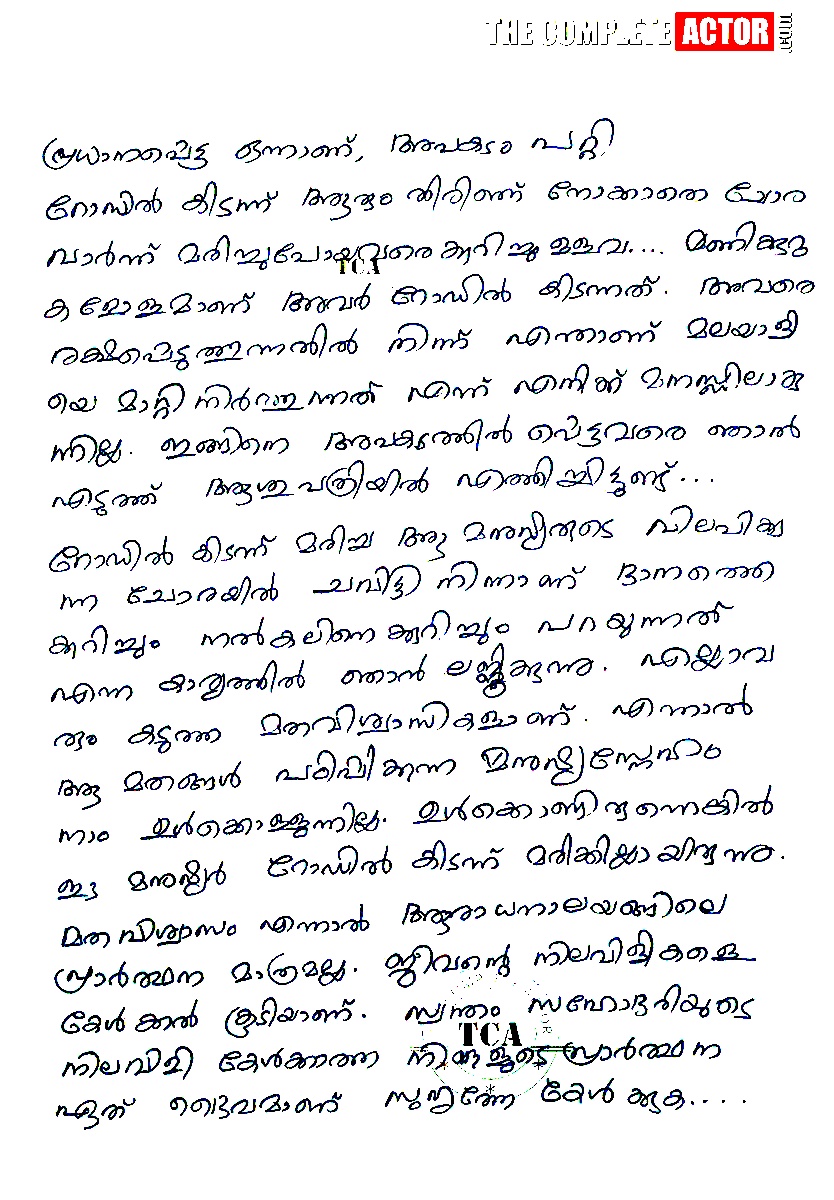 THE COMPLETE ACTOR .COM
പ്രധാനപ്പെട്ട ഒന്നാണ്, അപകടം പറ്റി
റോഡിൽ കിടന്ന് ആരും തിരിഞ്ഞ് നോക്കാതെ ചോര
വാർന്ന് മരിച്ചുപോയവരെക്കുറിച്ചുള്ളവ.... മണിക്കൂറു
കളോളമാണ് അവർ റോഡിൽ കിടന്നത്. അവരെ
TCA
രക്ഷപ്പെടുത്തുന്നതിൽ നിന്ന് എന്താണ് മലയാളി
യെ മാറ്റി നിർത്തുന്നത് എന്ന് എനിക്ക് മനസ്സിലാകു
ന്നില്ല. ഇങ്ങിനെ അപകടത്തിൽ പ്പെട്ടവരെ ഞാൻ
എടുത്ത് ആശുപത്രിയിൽ എത്തിച്ചിട്ടുണ്ട്...
റോഡിൽ കിടന്ന് മരിച്ച ആ മനുഷ്യരുടെ വിലപിക്കു
ന്ന ചോരയിൽ ചവിട്ടി നിന്നാണ് ദാനത്തെ
ക്കുറിച്ചും നൽകലിനെക്കുറിച്ചും പറയുന്നത്
എന്ന കാര്യത്തിൽ ഞാൻ ലജ്ജിക്കുന്നു. എല്ലാവ
രും കടുത്ത മതവിശ്വാസികളാണ്. എന്നാൽ
ആ മതങ്ങൾ പഠിപ്പിക്കുന്ന മനുഷ്യസ്നേഹം
നാം ഉൾക്കൊള്ളുന്നില്ല. ഉൾക്കൊണ്ടിരുന്നെങ്കിൽ
ഈ മനുഷ്യർ റോഡിൽ കിടന്ന് മരിക്കില്ലായിരുന്നു.
മതവിശ്വാസം എന്നാൽ ആരാധനാലയങ്ങളിലെ
പ്രാർത്ഥന മാത്രമല്ല. ജീവന്റെ നിലവിളികളെ
കേൾക്കൽ കൂടിയാണ്. സ്വന്തം സഹോദരിയുടെ
TCA
നിലവിളി കേൾക്കാത്ത നിങ്ങളുടെ പ്രാർത്ഥന
ഏത് ദൈവമാണ് സുഹൃത്തേ കേൾക്കുക....